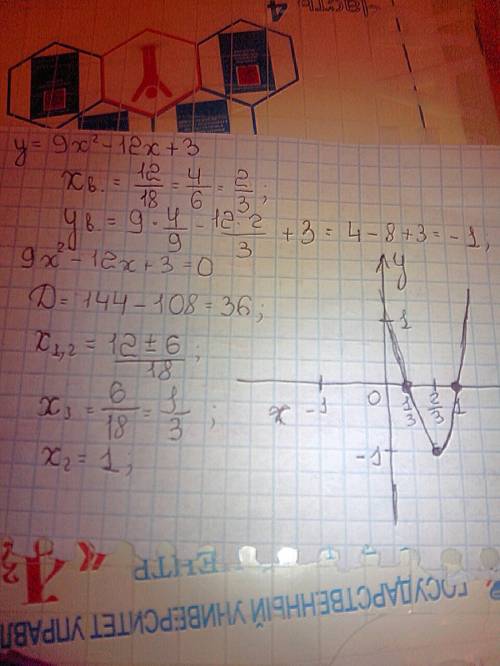 часть 4
y = 9x² - 12x + 3
xв. = 12/18 = 4/6 = 2/3;
yв = 9 · 4/9 - 12·2/3 + 3 = 4 - 8 + 3 = -1,
9x² - 12x + 3 = 0
D = 144 - 108 = 36;
x1,2 = 12 ± 6/18;
x3 = 6/18 = 1/3;
x2 = 1;
y
1
x -1 0 1/3 2/3 1
-1
ГОСУДАРСТВЕННЫЙ УНИВЕРСИТЕТ УПРАВЛ